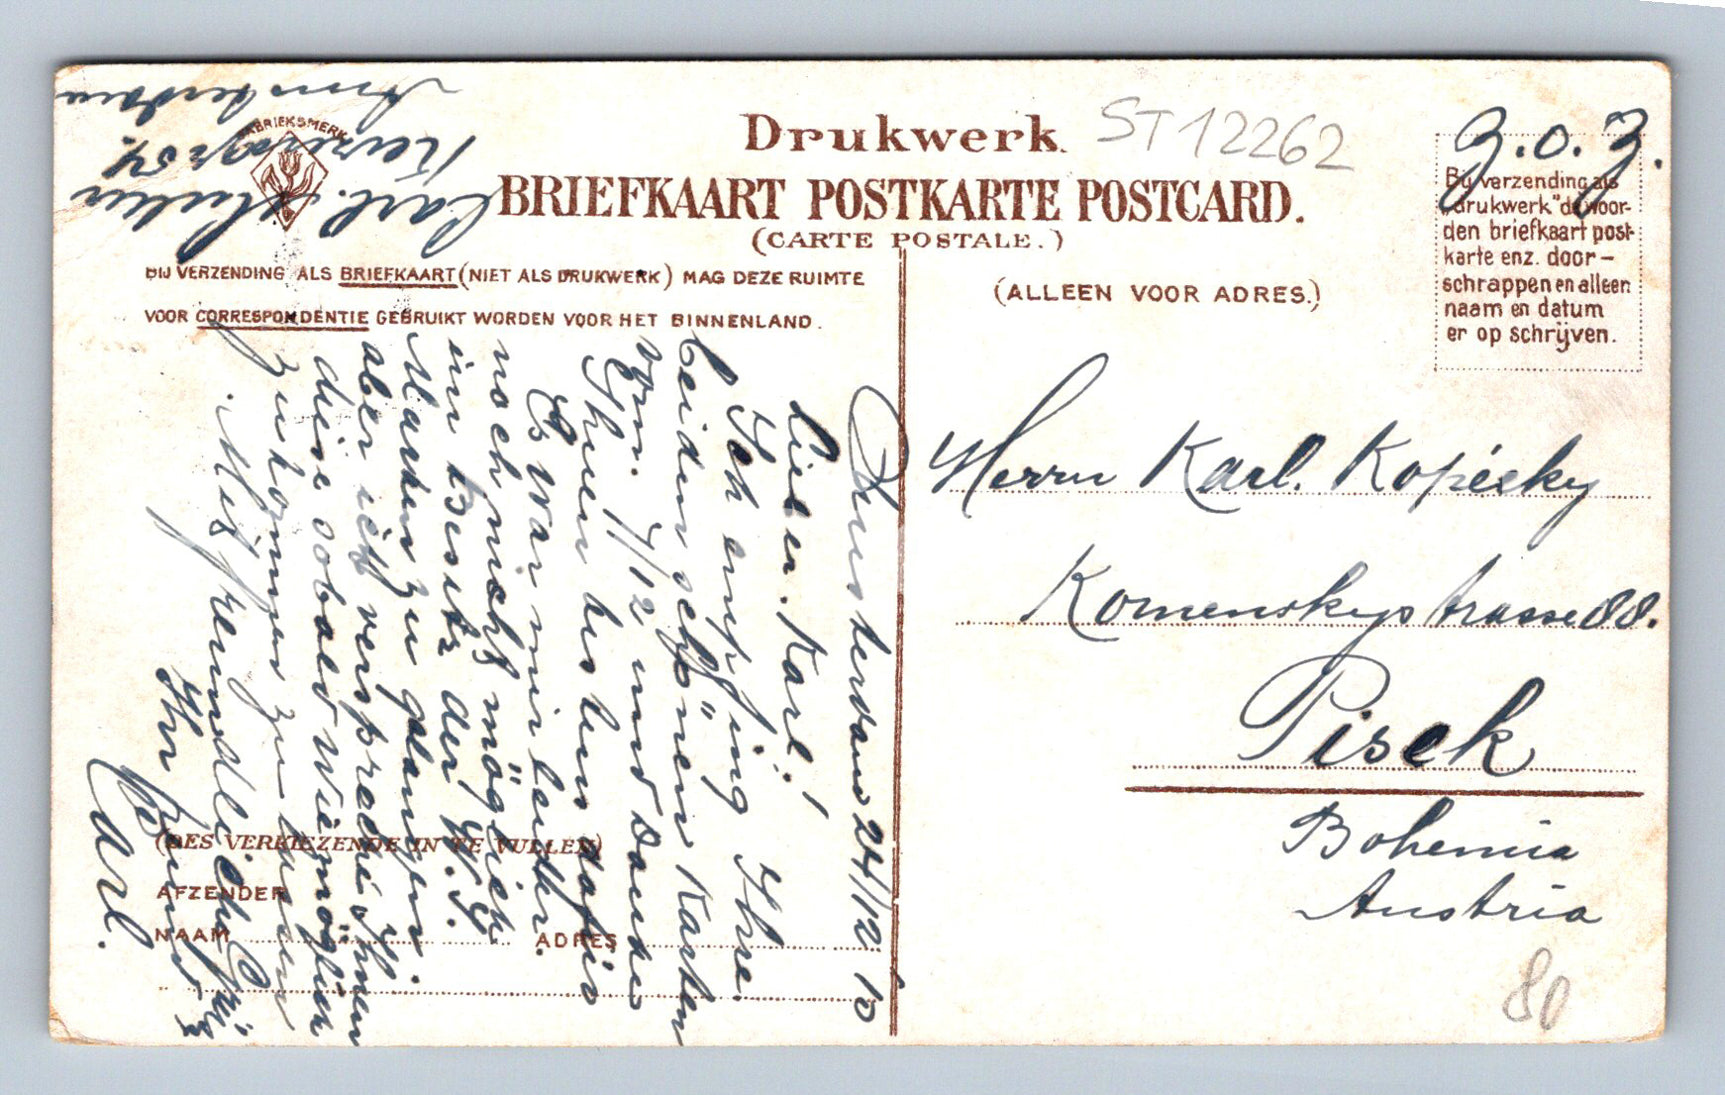 Drukwerk.
ST 12262
BRIEFKAART POSTKARTE POSTCARD.
(CARTE POSTALE.)
FABRIEKSMERK
BIJ VERZENDING ALS BRIEFKAART (NIET ALS DRUKWERK) MAG DEZE RUIMTE
VOOR CORRESPONDENTIE GEBRUIKT WORDEN VOOR HET BINNENLAND.
(ALLEEN VOOR ADRES.)
Z.O.Z.
By verzending als
"drukwerk" de woor-
den briefkaart post-
karte enz. door-
schrappen en alleen
naam en datum
er op schrijven.
Herrn Karl. Kopécky
Komenskystrasse 88.
Pisek
Bohemia
Austria
80
Amsterdam 24/12 10
Lieber. Karl!
Ich empfing Ihre.
beiden schönen Karten
vom. 7/12 und danke
Ihnen bestens dafür
Es war mir leider.
noch nicht möglich
im Besitz der
Marken zu gelangen.
aber ich verspreche Ihnen
diese sobald wie möglich
zukommen zu lassen
Mit freundliche
Ihr Freund
Carl.
(DES VERKIEZENDE IN TE VULLEN)
AFZENDER
NAAM
ADRES
Carl.
Keizersgr 84.
Amsterdam